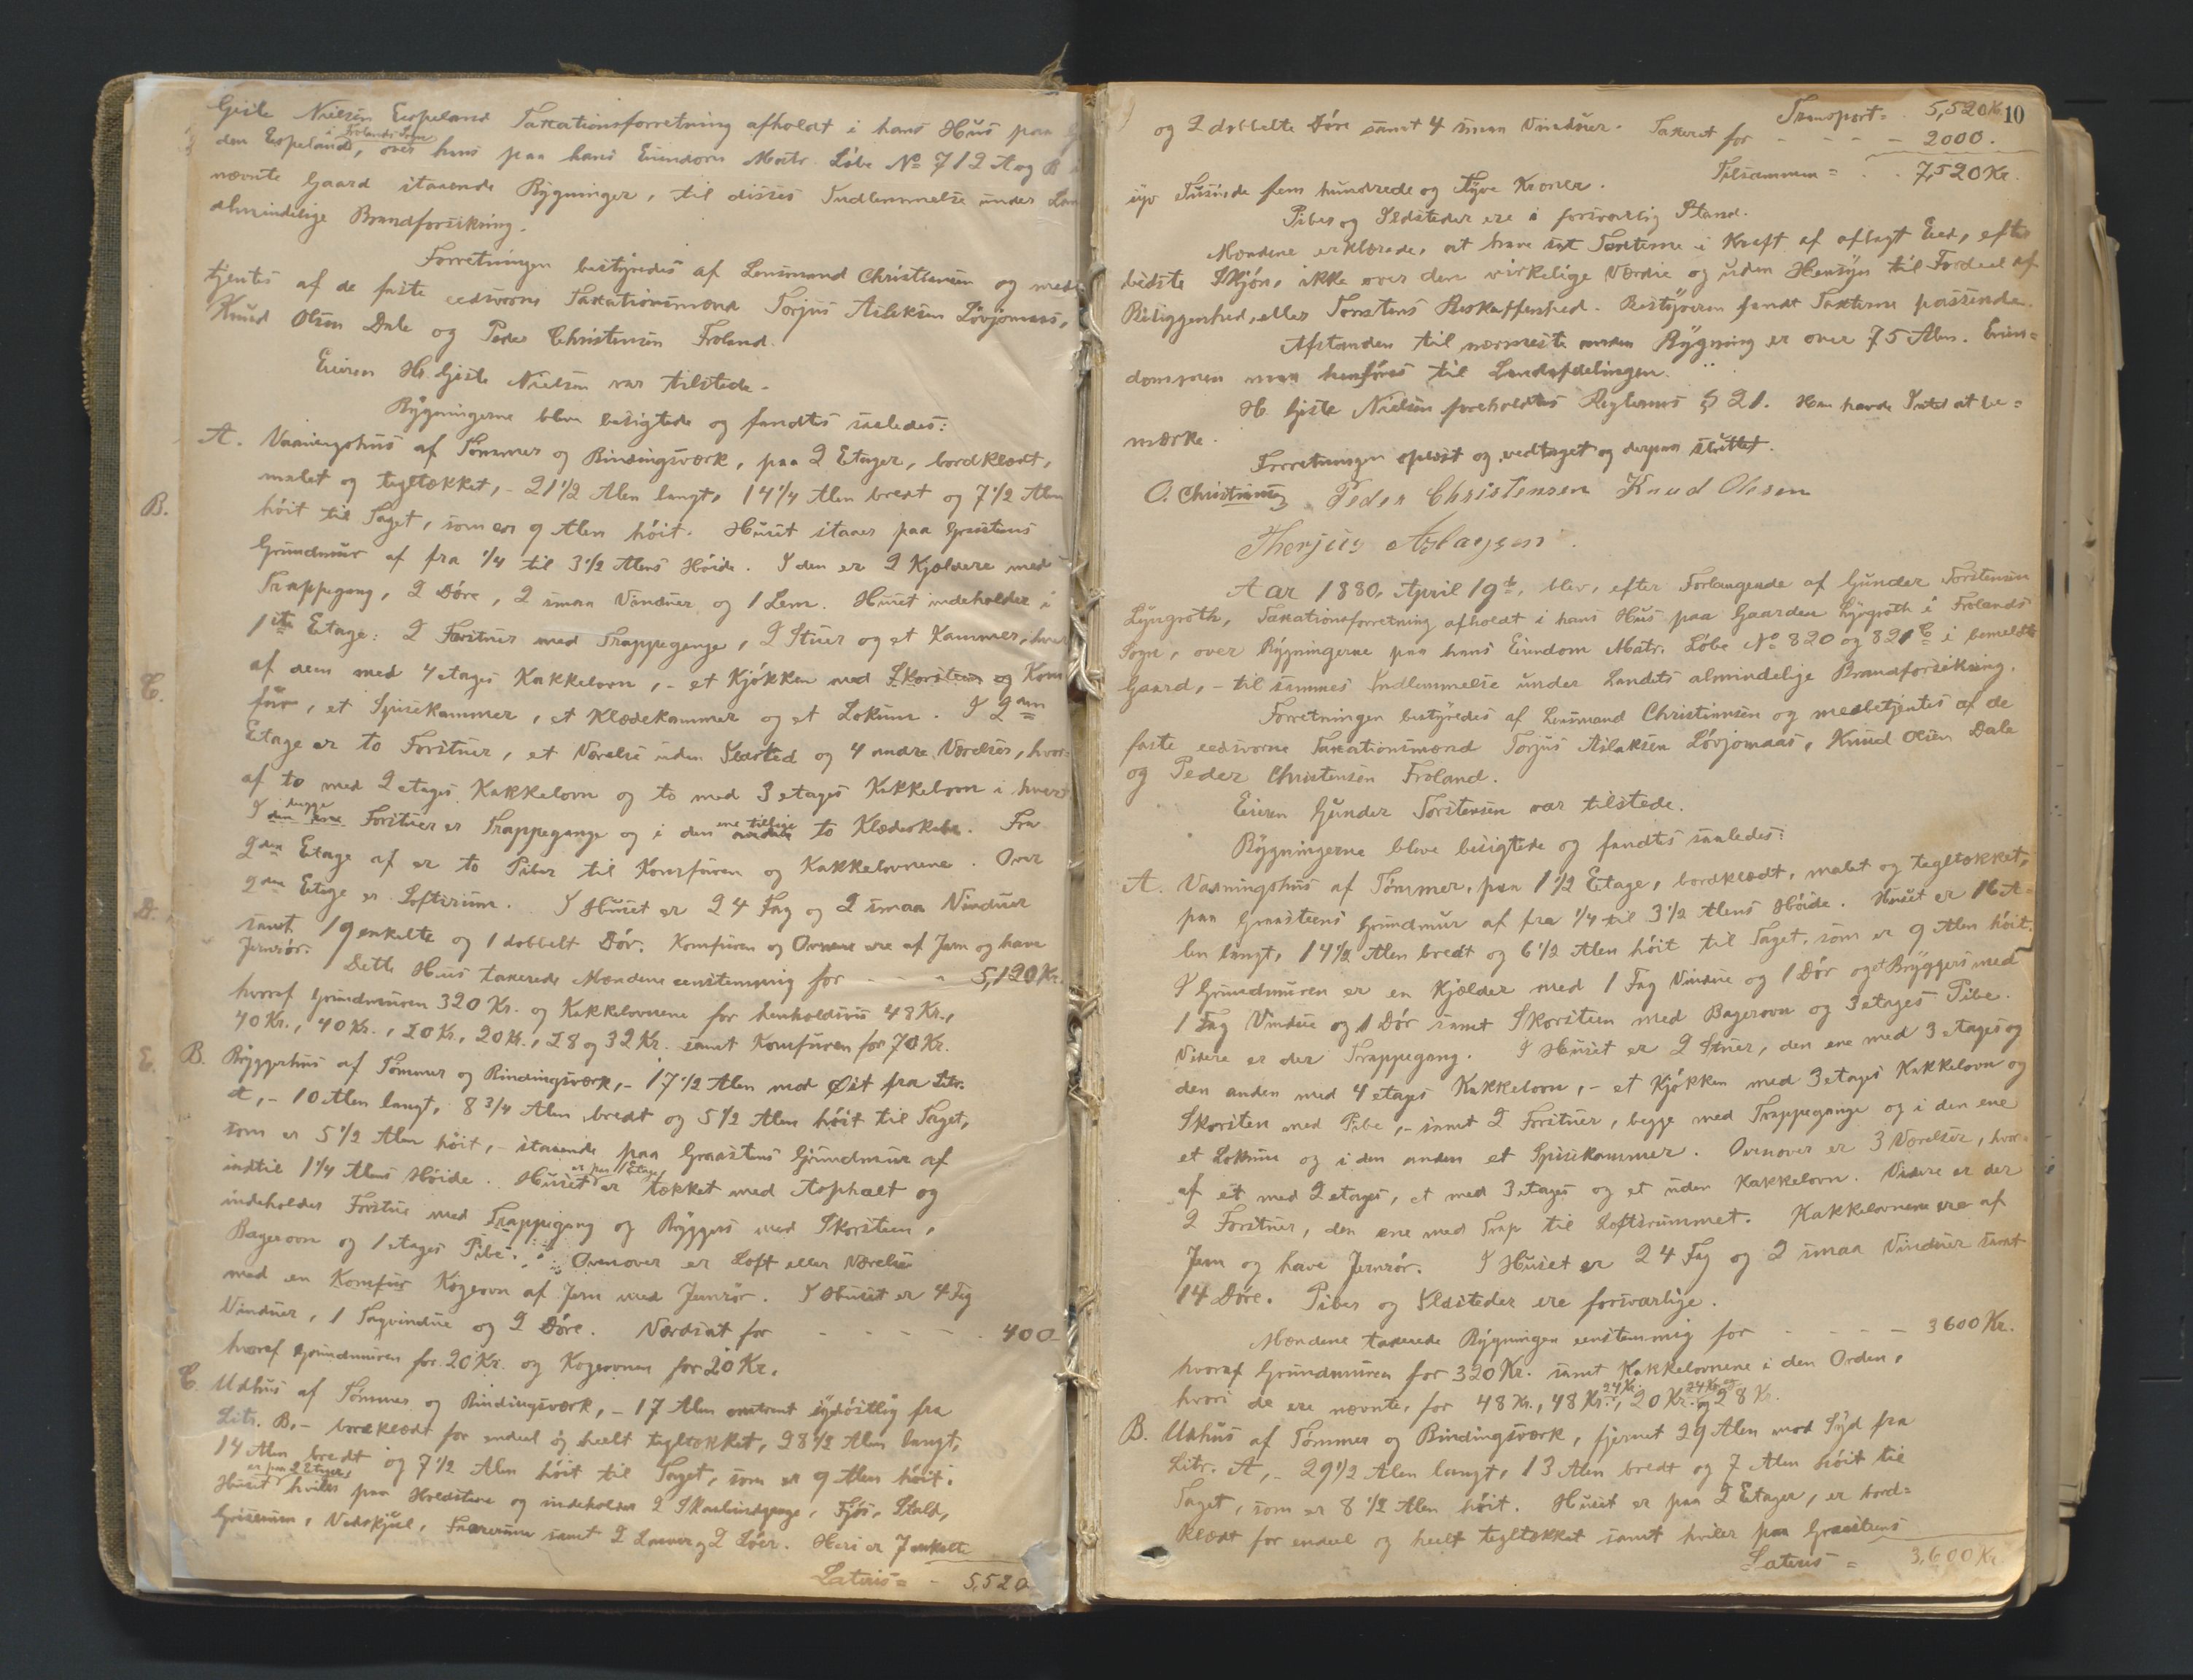 Gjeile Nielsen Espeland Taxationsforretning afholdt i hans Hus paa
i Frolands Sogn
den Espeland, over hans paa hans Eiendom Matr. Løbe No 712 A og B i
nævnte Gaard staaende Bygninger, til disses Indlemmelse under
almindelige Brandforsikring.
Forretningen bestyredes af Lensmand Christiansen og med
tjentes af de faste eedsvorne Taxationsmænd Torjus Aslaksen Løvjomaas,
Knud Olsen Dale og Peder Christensen Froland.
Eieren Hr. Gjeile Nielsen var tilstede.
Bygningerne bleve besigtede og fandtes saaledes:
A. Vaaningshus af Tømmer og Bindingsværk, paa 2 Etager, bordklædt,
malet og tegltækket, - 21 1/2 Alen langt, 14 1/4 Alen bredt og 7 1/2 Alen
B.
høit til Taget, som er 9 Alen høit. Huset staaer paa Graasteens
Grundmuur af fra 1/4 til 3 1/2 Alens Høide. I den er 2 Kjældere med
Trappegang, 2 Døre, 2 smaa Vinduer og 1 Lem. Huset indeholder i
1ste Etage: 2 Forstuer med Trappegange, 2 Stuer og et Kammer, hver
af dem med 4 etages Kakkelovn, - et Kjøkken med Skorsteen og Kom
C.
fur, et Spisekammer, et Klædekammer og et Lokum. I 2den
Etage er to Forstuer, et Værelse uden Ildsted og 4 andre Værelser, hvor=
af to med 2 etages Kakkelovn og to med 3 etages Kakkelovn i hvert
begge ene tillige
I den ene Forstuer er Trappegange og i den anden to Klædeskabe. Fra
2den Etage af er to Piber til Komfuren og Kakkelovnene. Over
2den Etage er Loftsrum. I Huset er 24 Fag og 2 smaa Vinduer
D.
samt 19 enkelte og 1 dobbelt Dør. Komfuren og Ovnene ere af Jern og have
Jernrør.
Dette Hus taxerede Mændene eenstemmig for - - - 5,120 Kr.
hvoraf Grundmuren 320 Kr. og Kakkelovnene for henholdsvis 48 Kr.,
40 Kr., 40 Kr., 20 Kr., 20 Kr., 28 og 32 Kr. samt Komfuren for 70 Kr.
E.
B. Bryggerhus af Tømmer og Bindingsværk, - 17 1/2 Alen mod Øst fra Litr.
A, - 10 Alen langt, 8 3/4 Alen bredt og 5 1/2 Alen høit til Taget,
som er 5 1/2 Alen høit, - staaende paa Graasteens Grundmuur af
indtil 1 1/4 Alens Høide. Huset er tækket med Asphalt og
er paa 1 Etage,
indeholder Forstue med Trappegang og Bryggers med Skorsteen,
Bagerovn og 1 etages Pibe. Ovenover er Loft eller Værelse
med en Komfur Kogeovn af Jern med Jernrør. I Huset er 4 Fag
Vinduer, 1 Tagvindue og 2 Døre. Værdsat for - - - - - 400 -
hvoraf Grundmuren for 20 Kr. og Kogeovnen for 20 Kr.
C. Udhus af Tømmer og Bindingsværk, - 17 Alen omtrent sydøstlig fra
Litr. B, - bordklædt for endeel og heelt tegltækket, 28 1/2 Alen langt,
14 Alen bredt og 7 1/2 Alen høit til Taget, som er 9 Alen høit.
er paa 2 Etager,
Huset hviler paa Holdstene og indeholder 2 , Fjøs, Stald,
Griserum, Vedskjul, Faarerum samt 2 og 2 Løer. Heri er 7 enkelte
Lateris = - 5,520
10
Transport = 5,520 Kr.
og 2 dobbelte Døre samt 4 smaa Vinduer. Taxeret for - - - - 2000.
Tilsammen = . . 7,520 Kr.
syv Tusinde fem hundrede og Tyve Kroner.
Piber og Ildsteder ere i forsvarlig Stand.
Mændene erklærede, at have sat Taxterne i Kraft af aflagt Eed, efter
bedste Skjøn, ikke over den virkelige Værdie og uden Hensyn til Fordeel af
Beliggenhed, eller Tomtens Beskaffenhed. Bestyreren fandt Taxterne passende.
Afstanden til nærmeste anden Bygning er over 75 Alen. Eien=
dommen maa henføres til Landafdelingen.
Hr. Gjeile Nielsen foreholdtes Reglernes § 21. Han havde Intet at be=
mærke.
Forretningen oplæst og vedtaget og derpaa sluttet.
O. Christiansen Peder Christensen Knud Olesen
Therjus Aslagsen.
Aar 1880, April 19de, blev, efter Forlangende af Gunder Torstensen
Lyngroth, Taxationsforretning afholdt i hans Hus paa Gaarden Lyngroth i Frolands
Sogn, over Bygningerne paa hans Eiendom Matr. Løbe No 820 og 821 C i bemeldte
Gaard, - til sammes Indlemmelse under Landets almindelige Brandforsikring.
Forretningen bestyredes af Lensmand Christiansen og medbetjentes af de
faste eedsvorne Taxationsmænd Torjus Aslaksen Løvjomaas, Knud Olsen Dale
og Peder Christensen Froland.
Eieren Gunder Torstensen var tilstede.
Bygningerne bleve besigtede og fandtes saaledes:
A. Vaaningshus af Tømmer, paa 1 1/2 Etage, bordklædt, malet og tegltækket,
paa Graasteens Grundmur af fra 1/4 til 3 1/2 Alens Høide. Huset er 16 A=
len langt, 14 1/2 Alen bredt og 6 1/2 Alen høit til Taget, som er 9 Alen høit.
I Grundmuren er en Kjælder med 1 Fag Vindue og 1 Dør og et Bryggers med
1 Fag Vindue og 1 Dør samt Skorsteen med Bagerovn og 3 etages Pibe.
Videre er der Trappegang. I Huset er 2 Stuer, den ene med 3 etages og
den anden med 4 etages Kakkelovn, - et Kjøkken med 3 etages Kakkelovn og
Skorsten med Pibe, - samt 2 Forstuer, begge med Trappegange og i den ene
et Lokum og i den anden et Spisekammer. Ovenover er 3 Værelser, hvor=
af et med 2 etages, et med 3 etages og et uden Kakkelovn. Videre er der
2 Forstuer, den ene med Trap til Loftsrummet. Kakkelovnene ere af
Jern og have Jernrør. I Huset er 24 Fag og 2 smaa Vinduer samt
14 Døre. Piber og Ildsteder ere forsvarlige.
Mændene taxerede Bygningen eenstemmig for - - - - 3600 Kr.
hvoraf Grundmuren for 320 Kr. samt Kakkelovnene i den Orden,
24 Kr. 24 Kr. og
hvori de ere nævnte, for 48 Kr., 48 Kr., 20 Kr. og 28 Kr.
B. Udhus af Tømmer og Bindingsværk, fjernet 29 Alen mod Syd fra
Litr. A, - 29 1/2 Alen langt, 13 Alen bredt og 7 Alen høit til
Taget, som er 8 1/2 Alen høit. Huset er paa 2 Etager, er bord=
klædt for endeel og heelt tegltækket samt hviler paa Graasteens
Lateris = 3,600 Kr.